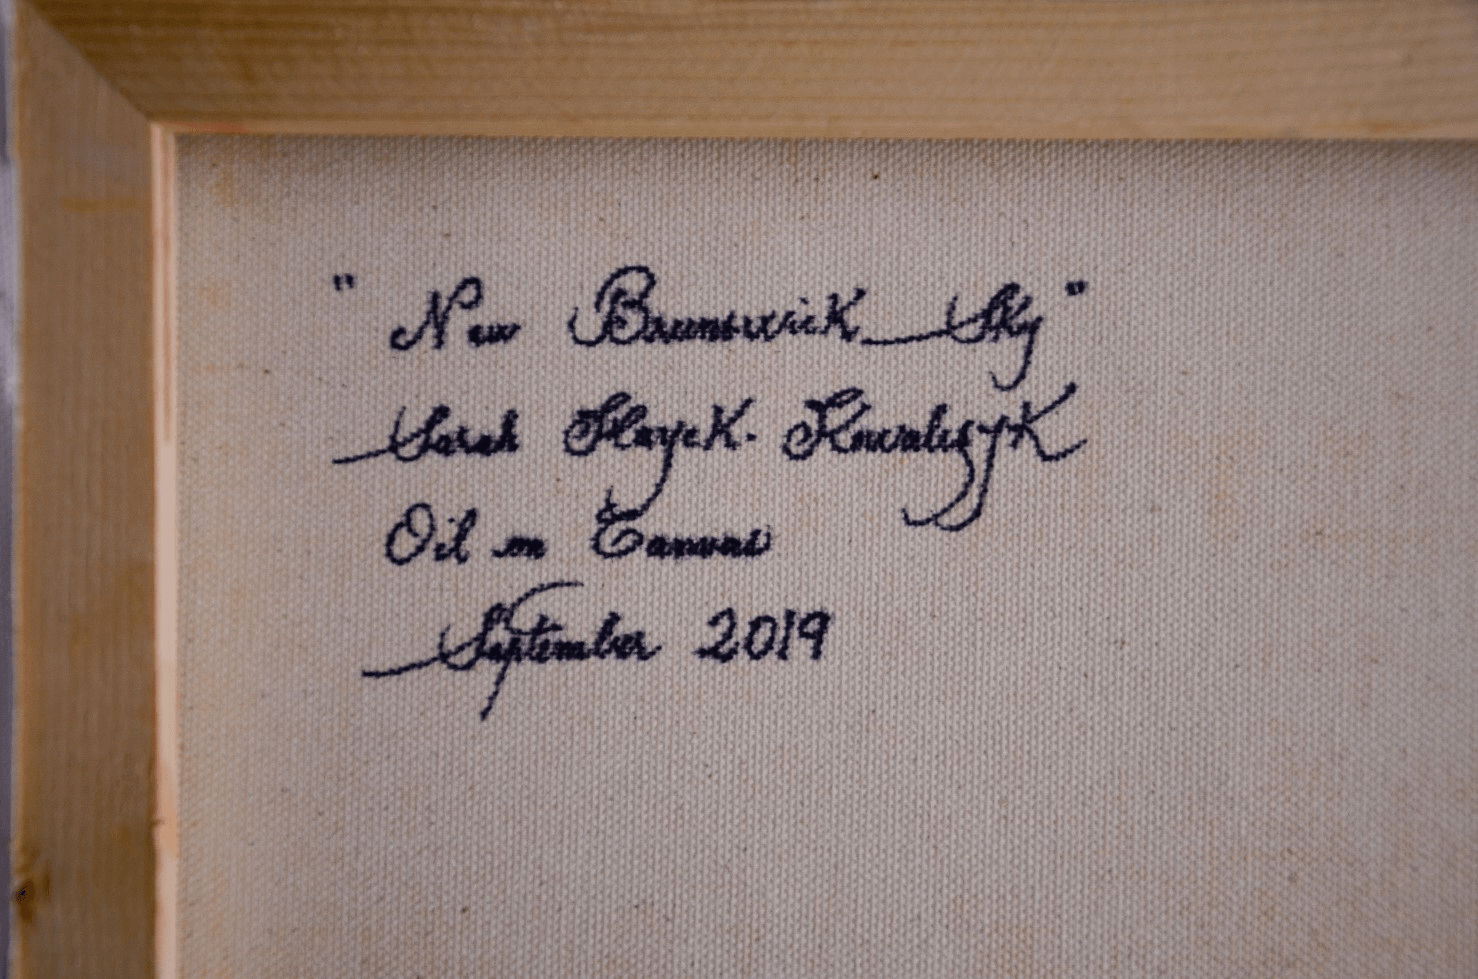 "New Brunswick Sky"
Sarah Hayek-Kowalczyk
Oil on Canvas
September 2019